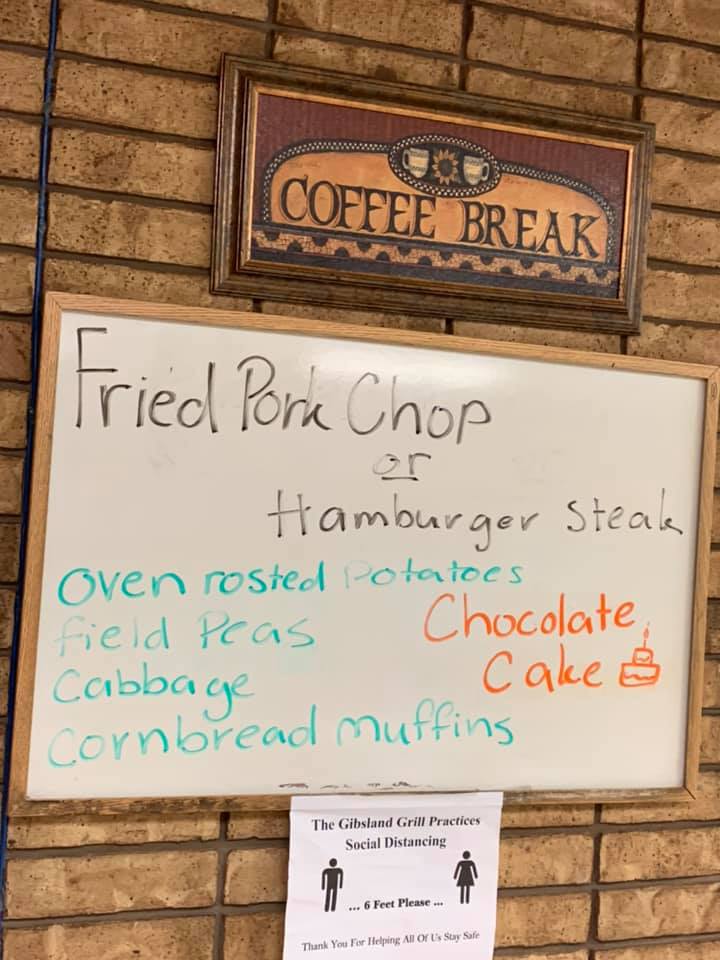 COFFEE BREAK
Fried Pork Chop
or
Hamburger Steak
Oven rosted Potatoes
field Peas
Cabbage
Cornbread muffins
Chocolate
Cake
The Gibsland Grill Practices
Social Distancing
... 6 Feet Please ...
Thank You For Helping All Of Us Stay Safe